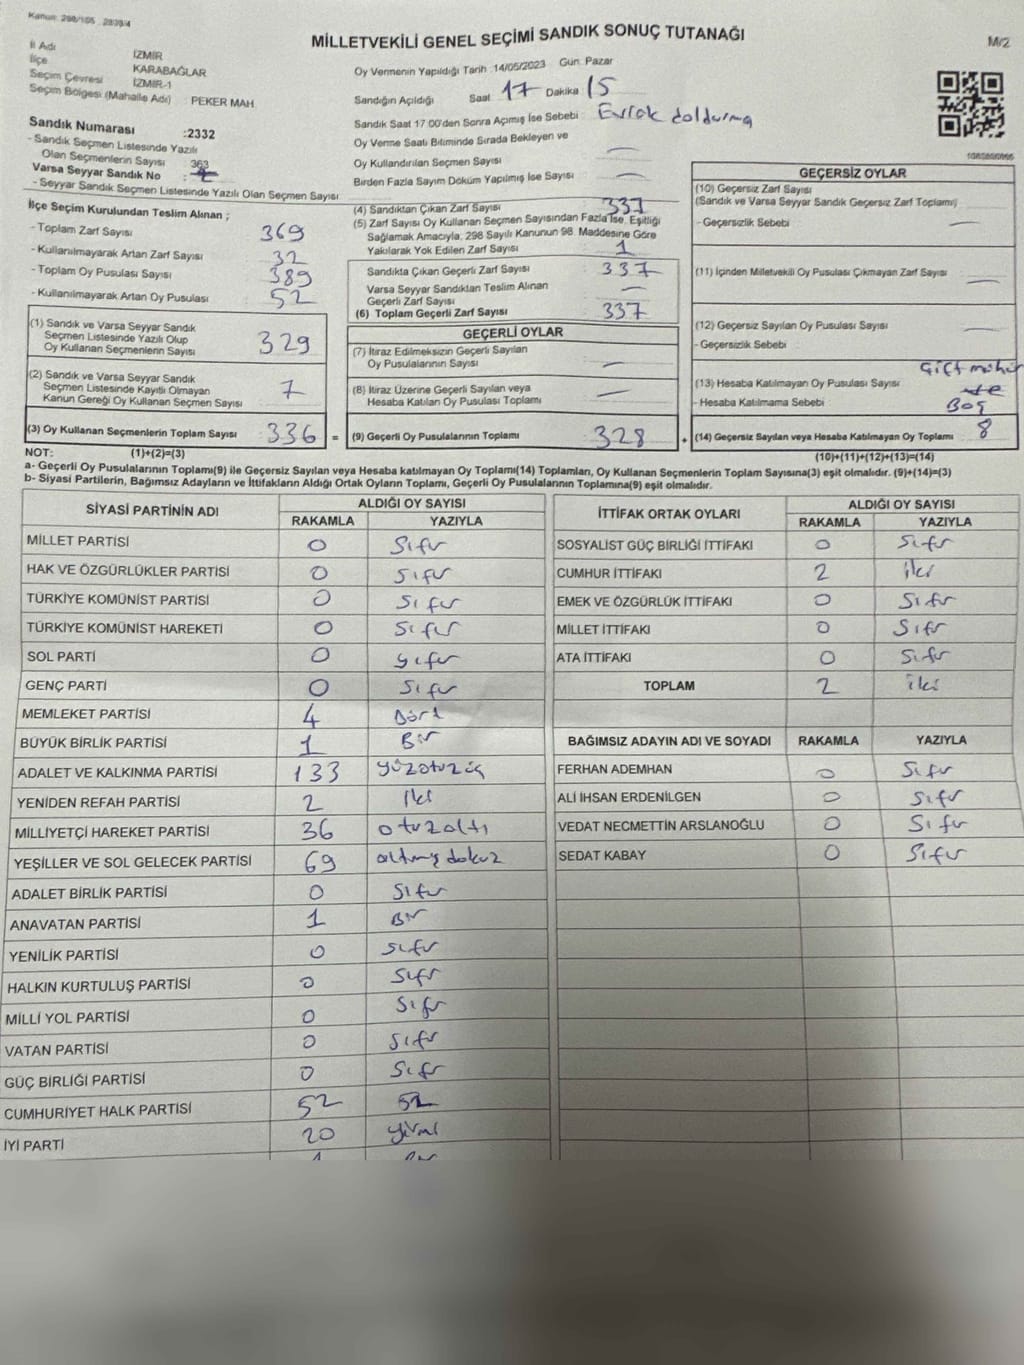 Kanun: 298/105
MİLLETVEKİLİ GENEL SEÇİMİ SANDIK SONUÇ TUTANAĞI
M/2
İl Adı İZMİR
İlçe KARABAĞLAR
Seçim Çevresi İZMİR-1
Seçim Bölgesi (Mahalle Adı) : PEKER MAH
Sandık Numarası :2332
- Sandık Seçmen Listesinde Yazılı
Olan Seçmenlerin Sayısı 363
Varsa Seyyar Sandık No :
- Seyyar Sandık Seçmen Listesinde Yazılı Olan Seçmen Sayısı
Oy Vermenin Yapıldığı Tarih :14/05/2023 Gün: Pazar
Sandığın Açıldığı Saat 17 Dakika 15
Sandık Saat 17:00'den Sonra Açımış İse Sebebi : Evrak doldurma
Oy Verme Saati Bitiminde Sırada Bekleyen ve
Oy Kullandırılan Seçmen Sayısı —
Birden Fazla Sayım Döküm Yapılmış İse Sayısı —
İlçe Seçim Kurulundan Teslim Alınan ;
- Toplam Zarf Sayısı 369
- Kullanılmayarak Artan Zarf Sayısı 32
- Toplam Oy Pusulası Sayısı 389
- Kullanılmayarak Artan Oy Pusulası 52
(1) Sandık ve Varsa Seyyar Sandık
Seçmen Listesinde Yazılı Olup
Oy Kullanan Seçmenlerin Sayısı 329
(2) Sandık ve Varsa Seyyar Sandık
Seçmen Listesinde Kayıtlı Olmayan
Kanun Gereği Oy Kullanan Seçmen Sayısı 7
(3) Oy Kullanan Seçmenlerin Toplam Sayısı 336 =
(4) Sandıktan Çıkan Zarf Sayısı 337
(5) Zarf Sayısı Oy Kullanan Seçmen Sayısından Fazla İse, Eşitliği
Sağlamak Amacıyla, 298 Sayılı Kanunun 98. Maddesine Göre
Yakılarak Yok Edilen Zarf Sayısı 1
Sandıkta Çıkan Geçerli Zarf Sayısı 337
Varsa Seyyar Sandıktan Teslim Alınan
Geçerli Zarf Sayısı —
(6) Toplam Geçerli Zarf Sayısı 337
GEÇERLİ OYLAR
(7) İtiraz Edilmeksizin Geçerli Sayılan
Oy Pusulalarının Sayısı —
(8) İtiraz Üzerine Geçerli Sayılan veya
Hesaba Katılan Oy Pusulası Toplamı —
(9) Geçerli Oy Pusulalarının Toplamı 328 +
GEÇERSİZ OYLAR
(10) Geçersiz Zarf Sayısı
(Sandık ve Varsa Seyyar Sandık Geçersiz Zarf Toplamı)
- Geçersizlik Sebebi —
(11) İçinden Milletvekili Oy Pusulası Çıkmayan Zarf Sayısı —
(12) Geçersiz Sayılan Oy Pusulası Sayısı —
- Geçersizlik Sebebi :
(13) Hesaba Katılmayan Oy Pusulası Sayısı Çift mühür
- Hesaba Katılmama Sebebi Boş
(14) Geçersiz Sayılan veya Hesaba Katılmayan Oy Toplamı 8
NOT: (1)+(2)=(3)
(10)+(11)+(12)+(13)=(14)
a- Geçerli Oy Pusulalarının Toplamı(9) ile Geçersiz Sayılan veya Hesaba katılmayan Oy Toplamı(14) Toplamları, Oy Kullanan Seçmenlerin Toplam Sayısına(3) eşit olmalıdır. (9)+(14)=(3)
b- Siyasi Partilerin, Bağımsız Adayların ve İttifakların Aldığı Ortak Oyların Toplamı, Geçerli Oy Pusulalarının Toplamına(9) eşit olmalıdır.
SİYASİ PARTİNİN ADI ALDIĞI OY SAYISI
RAKAMLA YAZIYLA
MİLLET PARTİSİ 0 Sıfır
HAK VE ÖZGÜRLÜKLER PARTİSİ 0 Sıfır
TÜRKİYE KOMÜNİST PARTİSİ 0 Sıfır
TÜRKİYE KOMÜNİST HAREKETİ 0 Sıfır
SOL PARTİ 0 Sıfır
GENÇ PARTİ 0 Sıfır
MEMLEKET PARTİSİ 4 Dört
BÜYÜK BİRLİK PARTİSİ 1 Bir
ADALET VE KALKINMA PARTİSİ 133 yüzotuzüç
YENİDEN REFAH PARTİSİ 2 İki
MİLLİYETÇİ HAREKET PARTİSİ 36 otuzaltı
YEŞİLLER VE SOL GELECEK PARTİSİ 69 altmış dokuz
ADALET BİRLİK PARTİSİ 0 Sıfır
ANAVATAN PARTİSİ 1 Bir
YENİLİK PARTİSİ 0 Sıfır
HALKIN KURTULUŞ PARTİSİ 0 Sıfır
MİLLİ YOL PARTİSİ 0 Sıfır
VATAN PARTİSİ 0 Sıfır
GÜÇ BİRLİĞİ PARTİSİ 0 Sıfır
CUMHURİYET HALK PARTİSİ 52 52
İYİ PARTİ 20 yirmi
İTTİFAK ORTAK OYLARI ALDIĞI OY SAYISI
RAKAMLA YAZIYLA
SOSYALİST GÜÇ BİRLİĞİ İTTİFAKI 0 Sıfır
CUMHUR İTTİFAKI 2 iki
EMEK VE ÖZGÜRLÜK İTTİFAKI 0 Sıfır
MİLLET İTTİFAKI 0 Sıfır
ATA İTTİFAKI 0 Sıfır
TOPLAM 2 iki
BAĞIMSIZ ADAYIN ADI VE SOYADI RAKAMLA YAZIYLA
FERHAN ADEMHAN 0 Sıfır
ALİ İHSAN ERDENİLGEN 0 Sıfır
VEDAT NECMETTİN ARSLANOĞLU 0 Sıfır
SEDAT KABAY 0 Sıfır